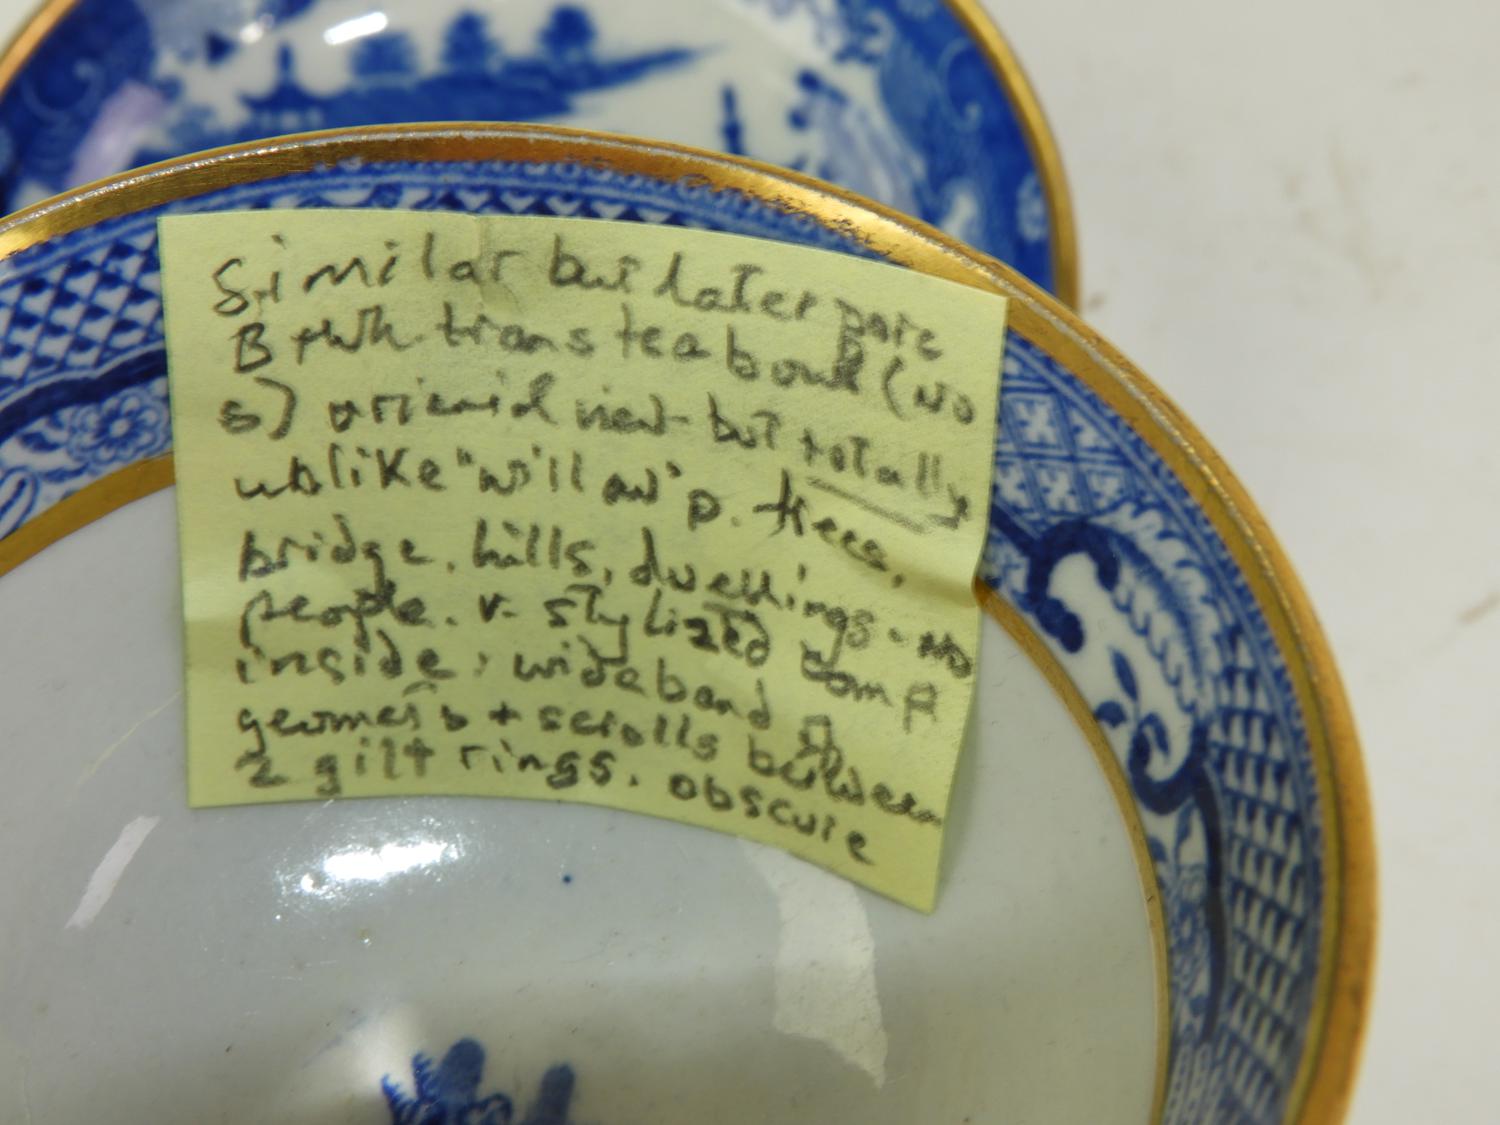 Similar but later
B + Wh trans tea bowl (No
S) oriental view - but totally
unlike "willow" p. trees,
bridge, hills, dwellings - no
people. v. stylized comp
inside: wide band of
geomets + scrolls between
2 gilt rings. obscure